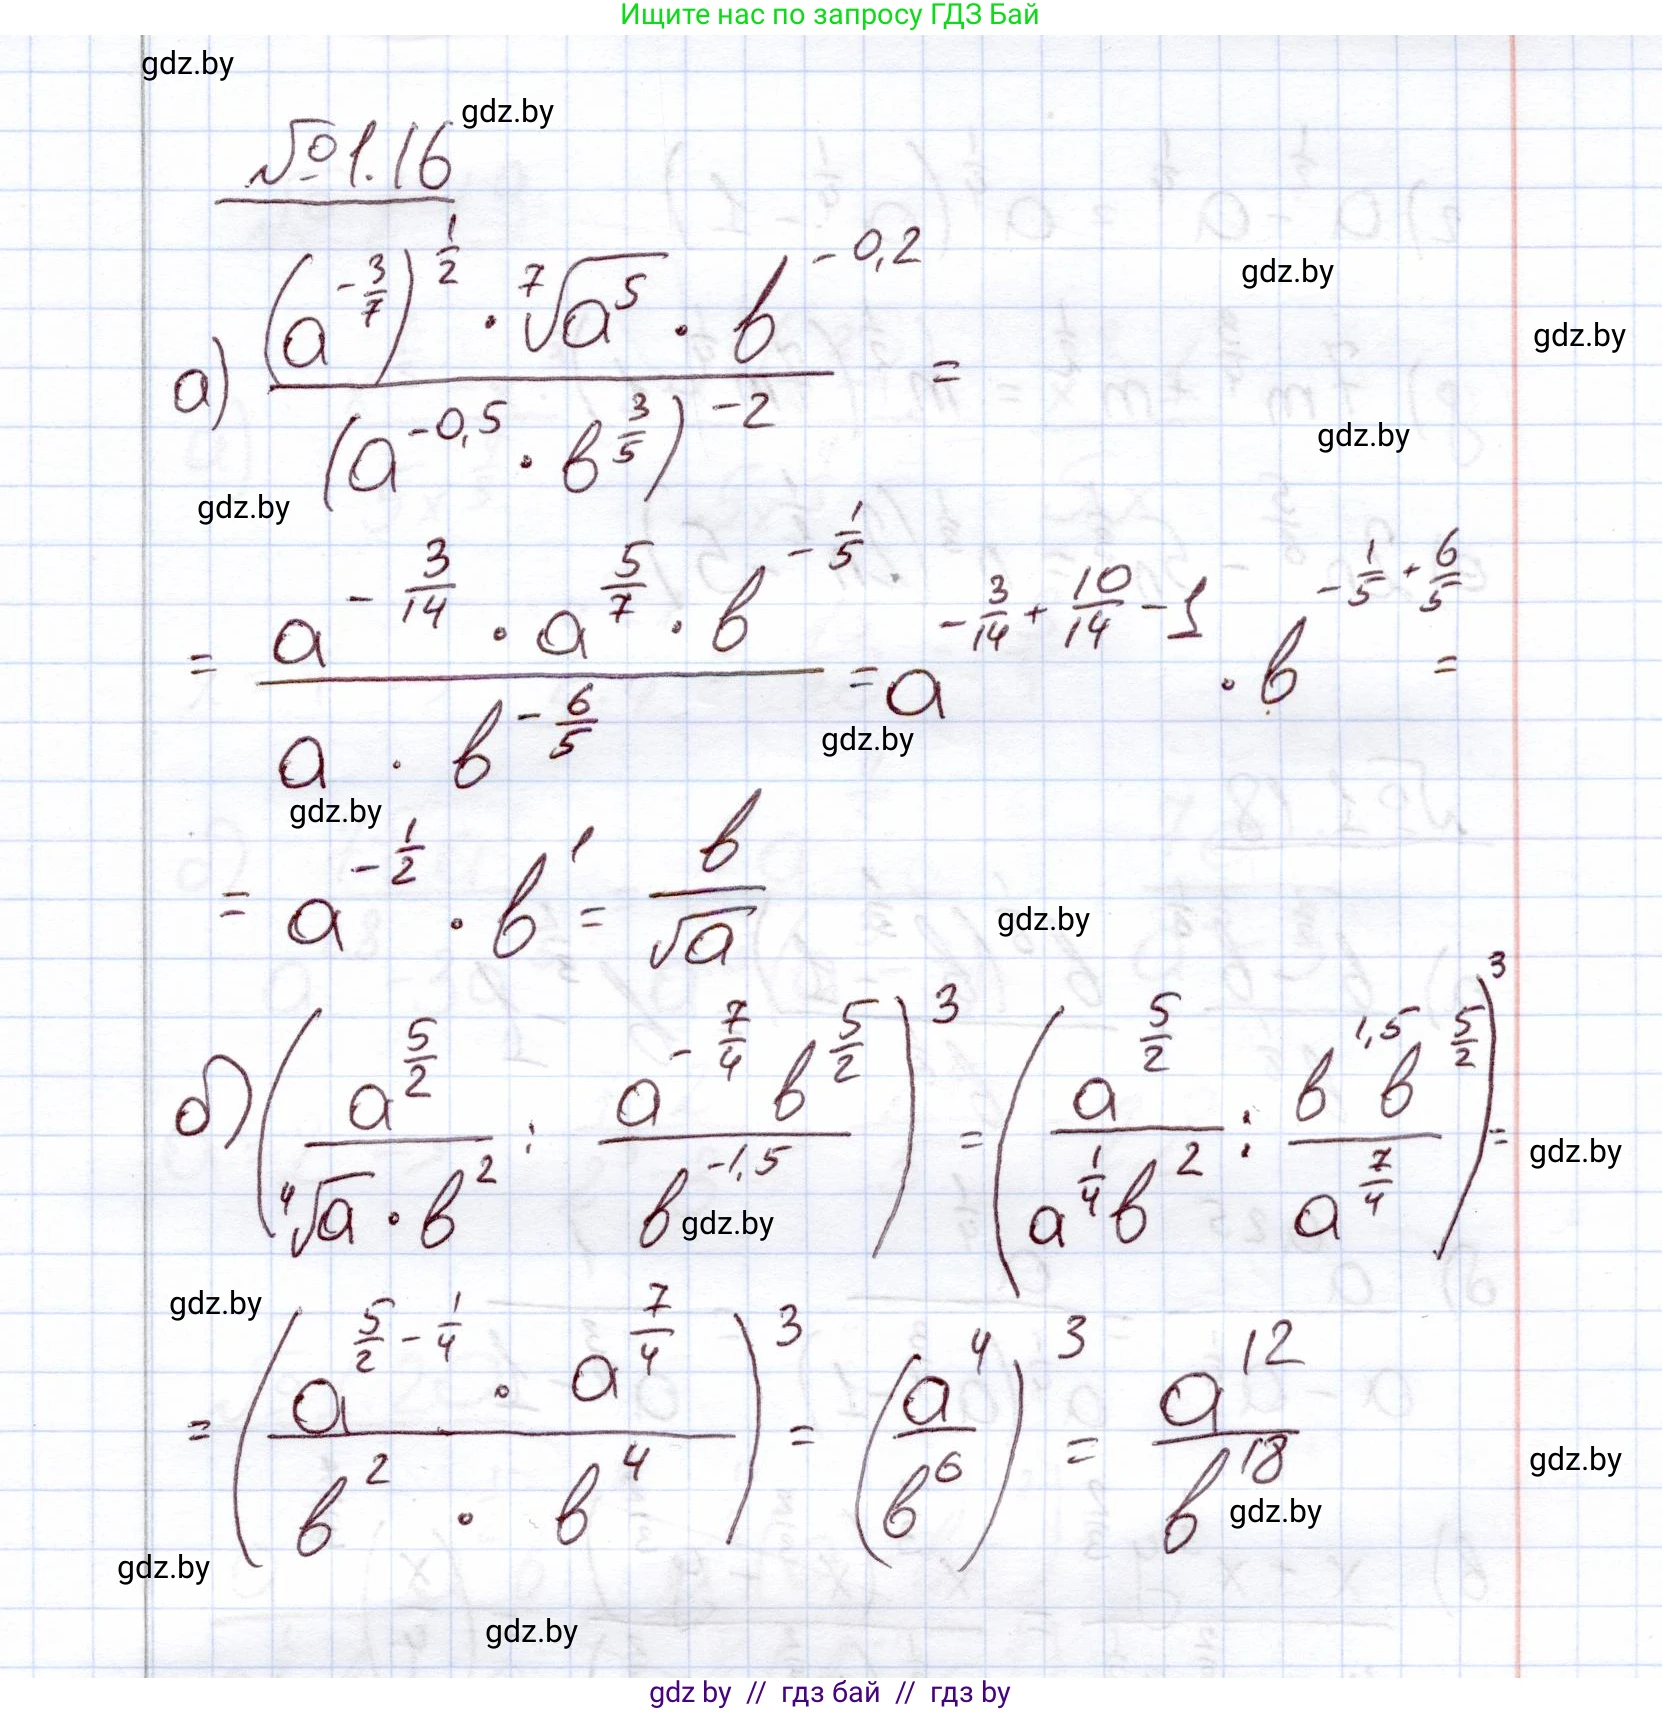 Ищите нас по запросу ГДЗ Бай
gdz.by
gdz.by
№1.16
а) ((a^(-3/7))^(1/2) · ⁷√(a^5) · b^(-0,2)) / (a^(-0,5) · b^(3/5))^(-2) =
gdz.by
gdz.by
gdz.by
gdz.by
= (a^(-3/14) · a^(5/7) · b^(-1/5)) / (a · b^(-6/5)) = a^(-3/14 + 10/14 - 1) · b^(-1/5 + 6/5) =
gdz.by
gdz.by
= a^(-1/2) · b^1 = b / √a
gdz.by
б) (a^(5/2) / (⁴√a · b^2) : (a^(-7/4) b^(5/2)) / b^(-1,5))^3 = (a^(5/2) / (a^(1/4) b^2) : (b^(1,5) b^(5/2)) / a^(7/4))^3 =
gdz.by
gdz.by
gdz.by
= ((a^(5/2 - 1/4) · a^(7/4)) / (b^2 · b^4))^3 = (a^4 / b^6)^3 = a^12 / b^18
gdz.by
gdz.by
gdz.by
gdz.by
gdz by // гдз бай // гдз by